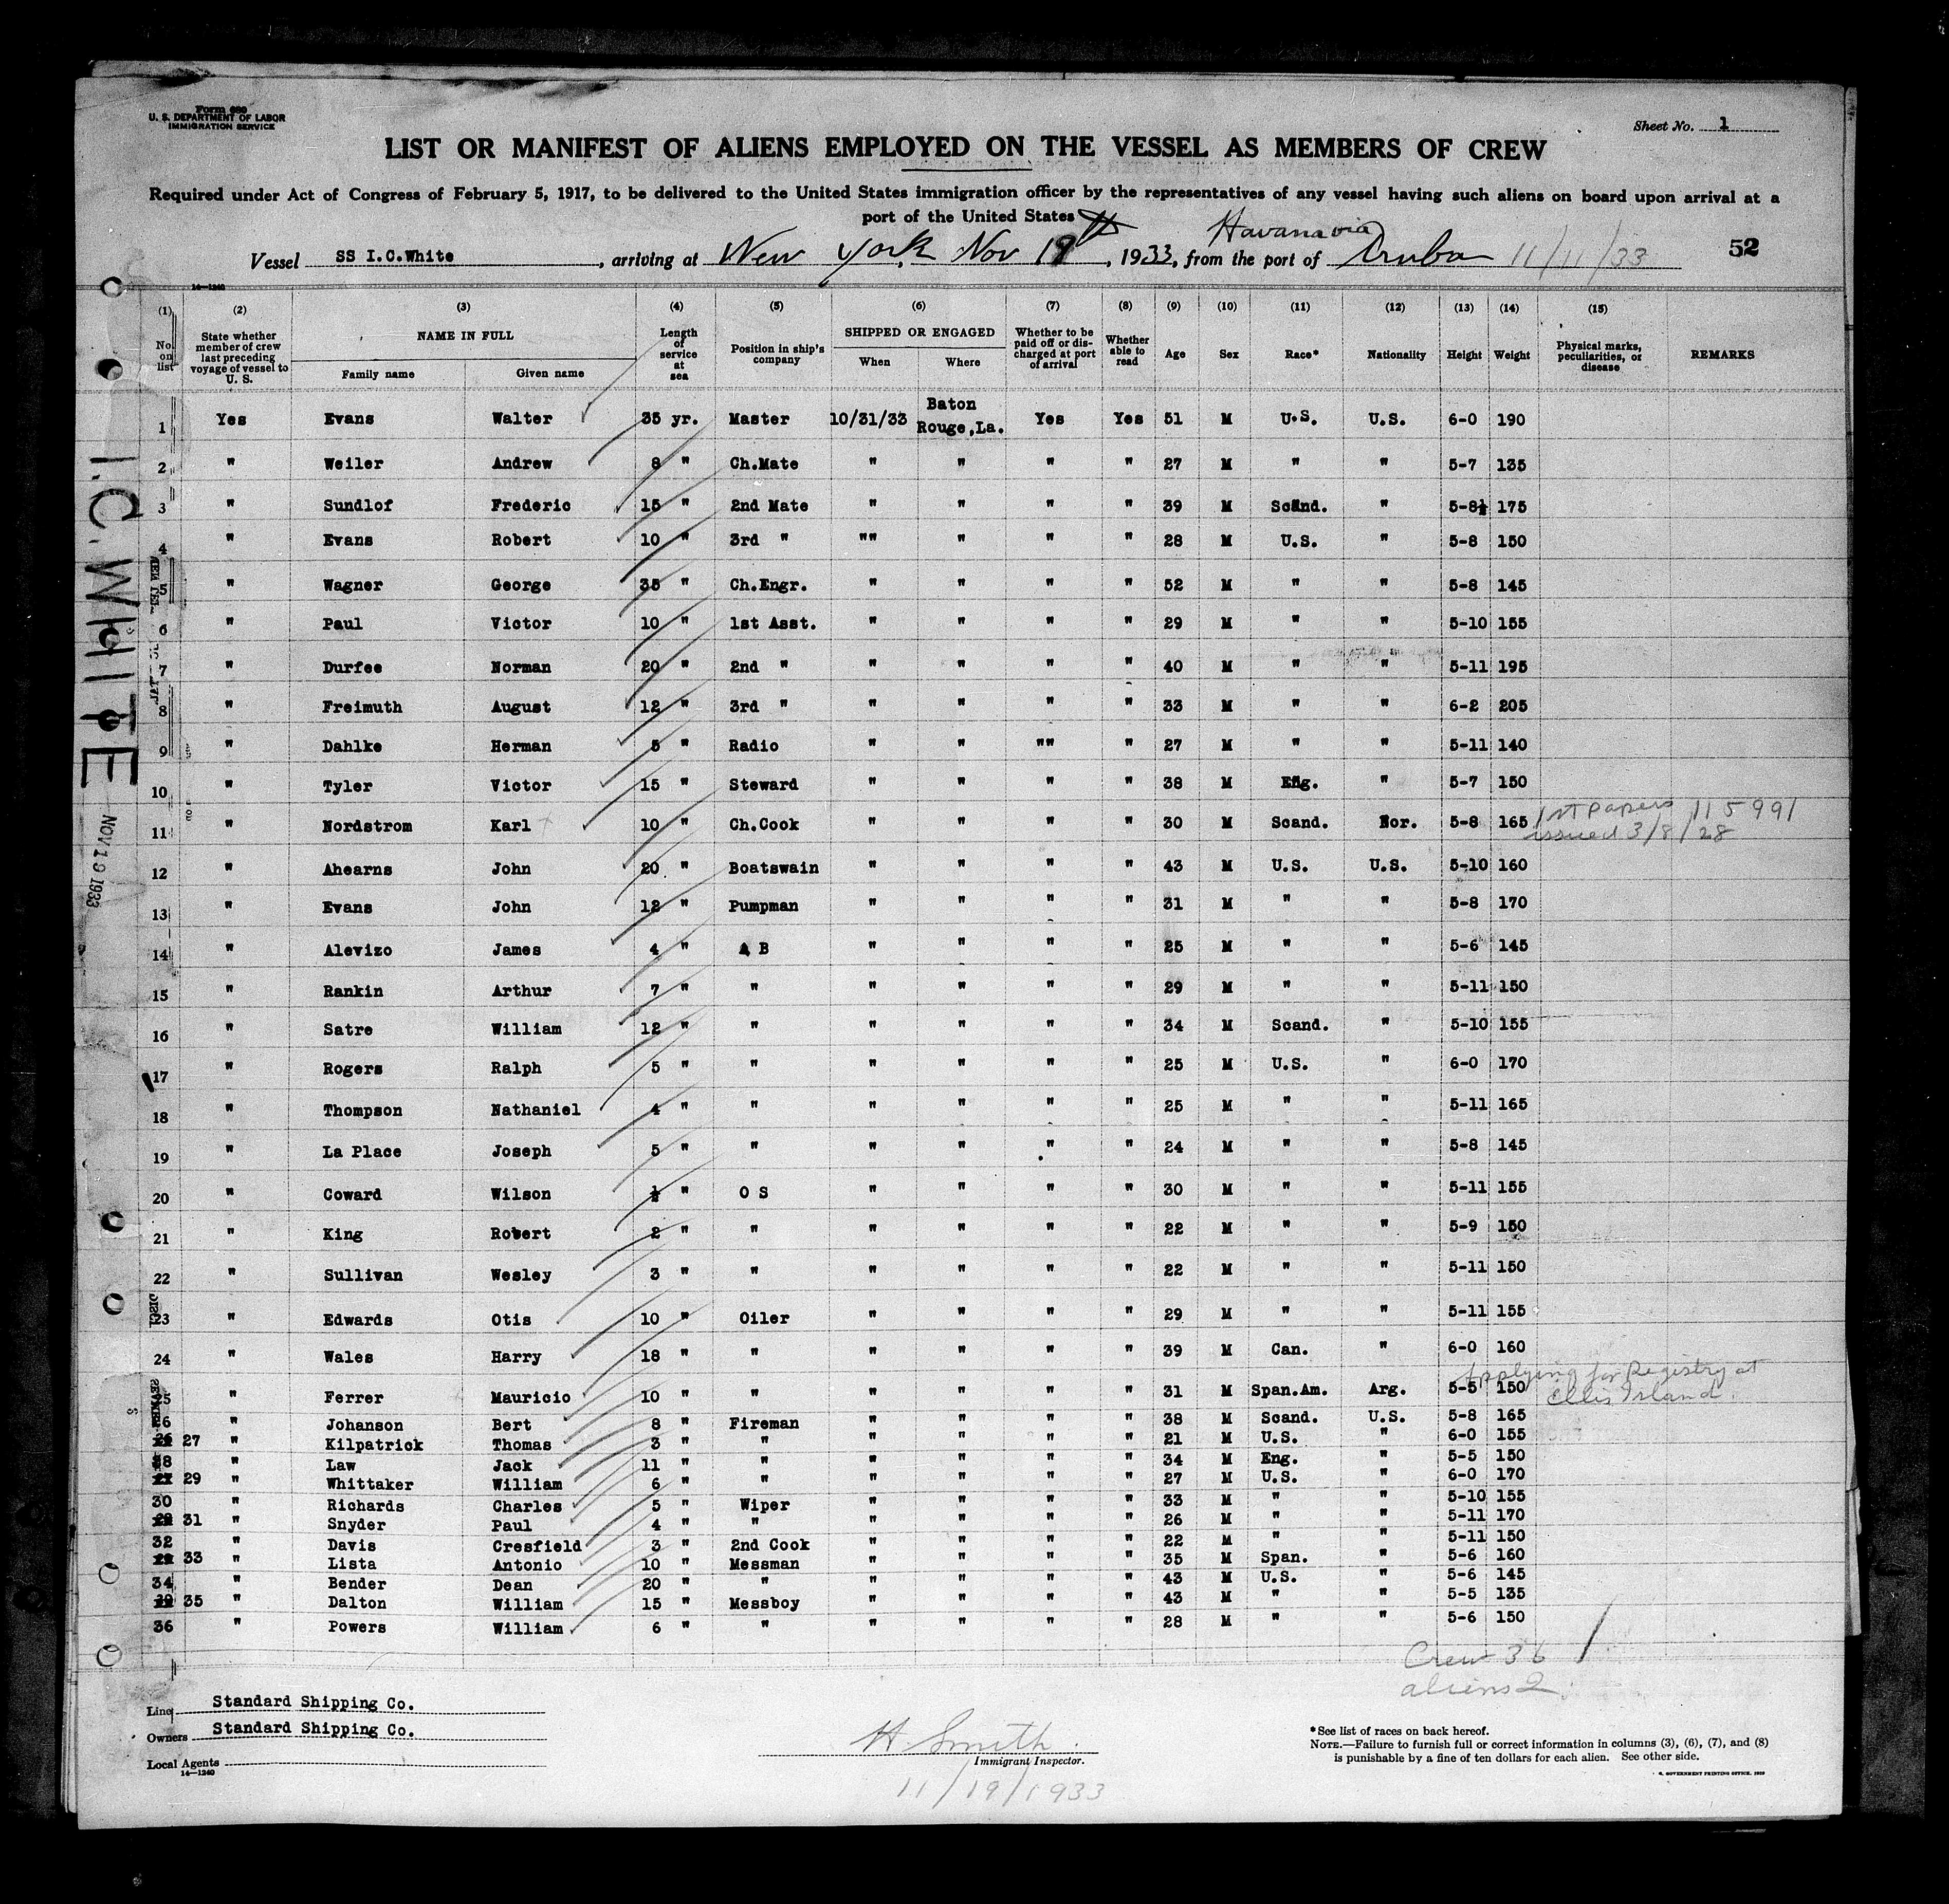 Form 689
U. S. DEPARTMENT OF LABOR
IMMIGRATION SERVICE
Sheet No. 1
LIST OR MANIFEST OF ALIENS EMPLOYED ON THE VESSEL AS MEMBERS OF CREW
Required under Act of Congress of February 5, 1917, to be delivered to the United States immigration officer by the representatives of any vessel having such aliens on board upon arrival at a
port of the United States
Havana via
Vessel SS I.C.White, arriving at New York, Nov 19th, 1933, from the port of Aruba 11/11/33 52
14—1240
(1) (2) (3) (4) (5) (6) (7) (8) (9) (10) (11) (12) (13) (14) (15)
No. on list State whether member of crew last preceding voyage of vessel to U. S. NAME IN FULL Family name Given name Length of service at sea Position in ship's company SHIPPED OR ENGAGED When Where Whether to be paid off or discharged at port of arrival Whether able to read Age Sex Race* Nationality Height Weight Physical marks, peculiarities, or disease REMARKS
1 Yes Evans Walter 35 yr. Master 10/31/33 Baton Rouge,La. Yes Yes 51 M U.S. U.S. 6-0 190
2 " Weiler Andrew 8 " Ch.Mate " " " " 27 M " " 5-7 135
3 " Sundlof Frederic 15 " 2nd Mate " " " " 39 M Scand. " 5-8½ 175
4 " Evans Robert 10 " 3rd " "" " " " 28 M U.S. " 5-8 150
5 " Wagner George 35 " Ch.Engr. " " " " 52 M " " 5-8 145
6 " Paul Victor 10 " 1st Asst. " " " " 29 M " " 5-10 155
7 " Durfee Norman 20 " 2nd " " " " " 40 M " " 5-11 195
8 " Freimuth August 12 " 3rd " " " " " 33 M " " 6-2 205
9 " Dahlke Herman 5 " Radio " " "" " 27 M " " 5-11 140
10 " Tyler Victor 15 " Steward " " " " 38 M Eng. " 5-7 150
11 " Nordstrom Karl 10 " Ch.Cook " " " " 30 M Scand. Nor. 5-8 165 1st papers 115991 issued 3/8/28
12 " Ahearns John 20 " Boatswain " " " " 43 M U.S. U.S. 5-10 160
13 " Evans John 12 " Pumpman " " " " 31 M " " 5-8 170
14 " Alevizo James 4 " A B " " " " 25 M " " 5-6 145
15 " Rankin Arthur 7 " " " " " " 29 M " " 5-11 150
16 " Satre William 12 " " " " " " 34 M Scand. " 5-10 155
17 " Rogers Ralph 5 " " " " " " 25 M U.S. " 6-0 170
18 " Thompson Nathaniel 4 " " " " " " 25 M " " 5-11 165
19 " La Place Joseph 5 " " " " " " 24 M " " 5-8 145
20 " Coward Wilson ½ " O S " " " " 30 M " " 5-11 155
21 " King Robert 2 " " " " " " 22 M " " 5-9 150
22 " Sullivan Wesley 3 " " " " " " 22 M " " 5-11 150
23 " Edwards Otis 10 " Oiler " " " " 29 M " " 5-11 155
24 " Wales Harry 18 " " " " " " 39 M Can. " 6-0 160
25 " Ferrer Mauricio 10 " " " " " " 31 M Span.Am. Arg. 5-5 150 Applying for Registry at Ellis Island.
26 " Johanson Bert 8 " Fireman " " " " 38 M Scand. U.S. 5-8 165
27 " Kilpatrick Thomas 3 " " " " " " 21 M U.S. " 6-0 155
28 " Law Jack 11 " " " " " " 34 M Eng. " 5-5 150
29 " Whittaker William 6 " " " " " " 27 M U.S. " 6-0 170
30 " Richards Charles 5 " Wiper " " " " 33 M " " 5-10 155
31 " Snyder Paul 4 " " " " " " 26 M " " 5-11 170
32 " Davis Cresfield 3 " 2nd Cook " " " " 22 M " " 5-11 150
33 " Lista Antonio 10 " Messman " " " " 35 M Span. " 5-6 160
34 " Bender Dean 20 " " " " " " 43 M U.S. " 5-6 145
35 " Dalton William 15 " Messboy " " " " 43 M " " 5-5 135
36 " Powers William 6 " " " " " " 28 M " " 5-6 150
I.C. WHITE
NOV 19 1933
Crew 36
aliens 2
Line Standard Shipping Co.
Owners Standard Shipping Co.
Local Agents
14—1240
H. Smith
Immigrant Inspector.
11/19/1933
*See list of races on back hereof.
NOTE.—Failure to furnish full or correct information in columns (3), (6), (7), and (8)
is punishable by a fine of ten dollars for each alien. See other side.
GOVERNMENT PRINTING OFFICE